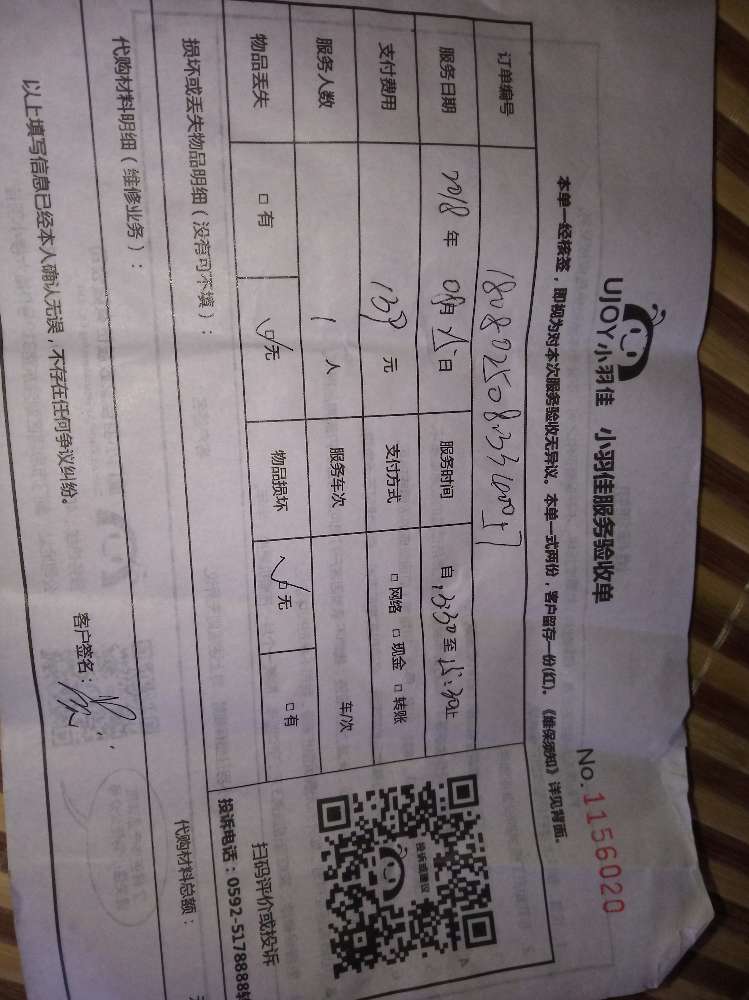 UJOY小羽佳 小羽佳服务验收单
No.1156020
本单一经核签，即视为对本次服务验收无异议。本单一式两份，客户留存一份(红)。《维保须知》详见背面。
订单编号
服务日期 2018年 08月 25日 服务时间 自 1330至 15:30止
支付费用 元 支付方式 □网络 □现金 □转账
服务人数 1 人 服务车次 车/次
物品丢失 □有 □无 物品损坏 □无 □有
损坏或丢失物品明细（没有可不填）：
代购材料明细（维修业务）：
代购材料总额：
以上填写信息已经本人确认无误，不存在任何争议纠纷。
客户签名：
投诉或建议
扫码评价或投诉
投诉电话：0592-5178888转